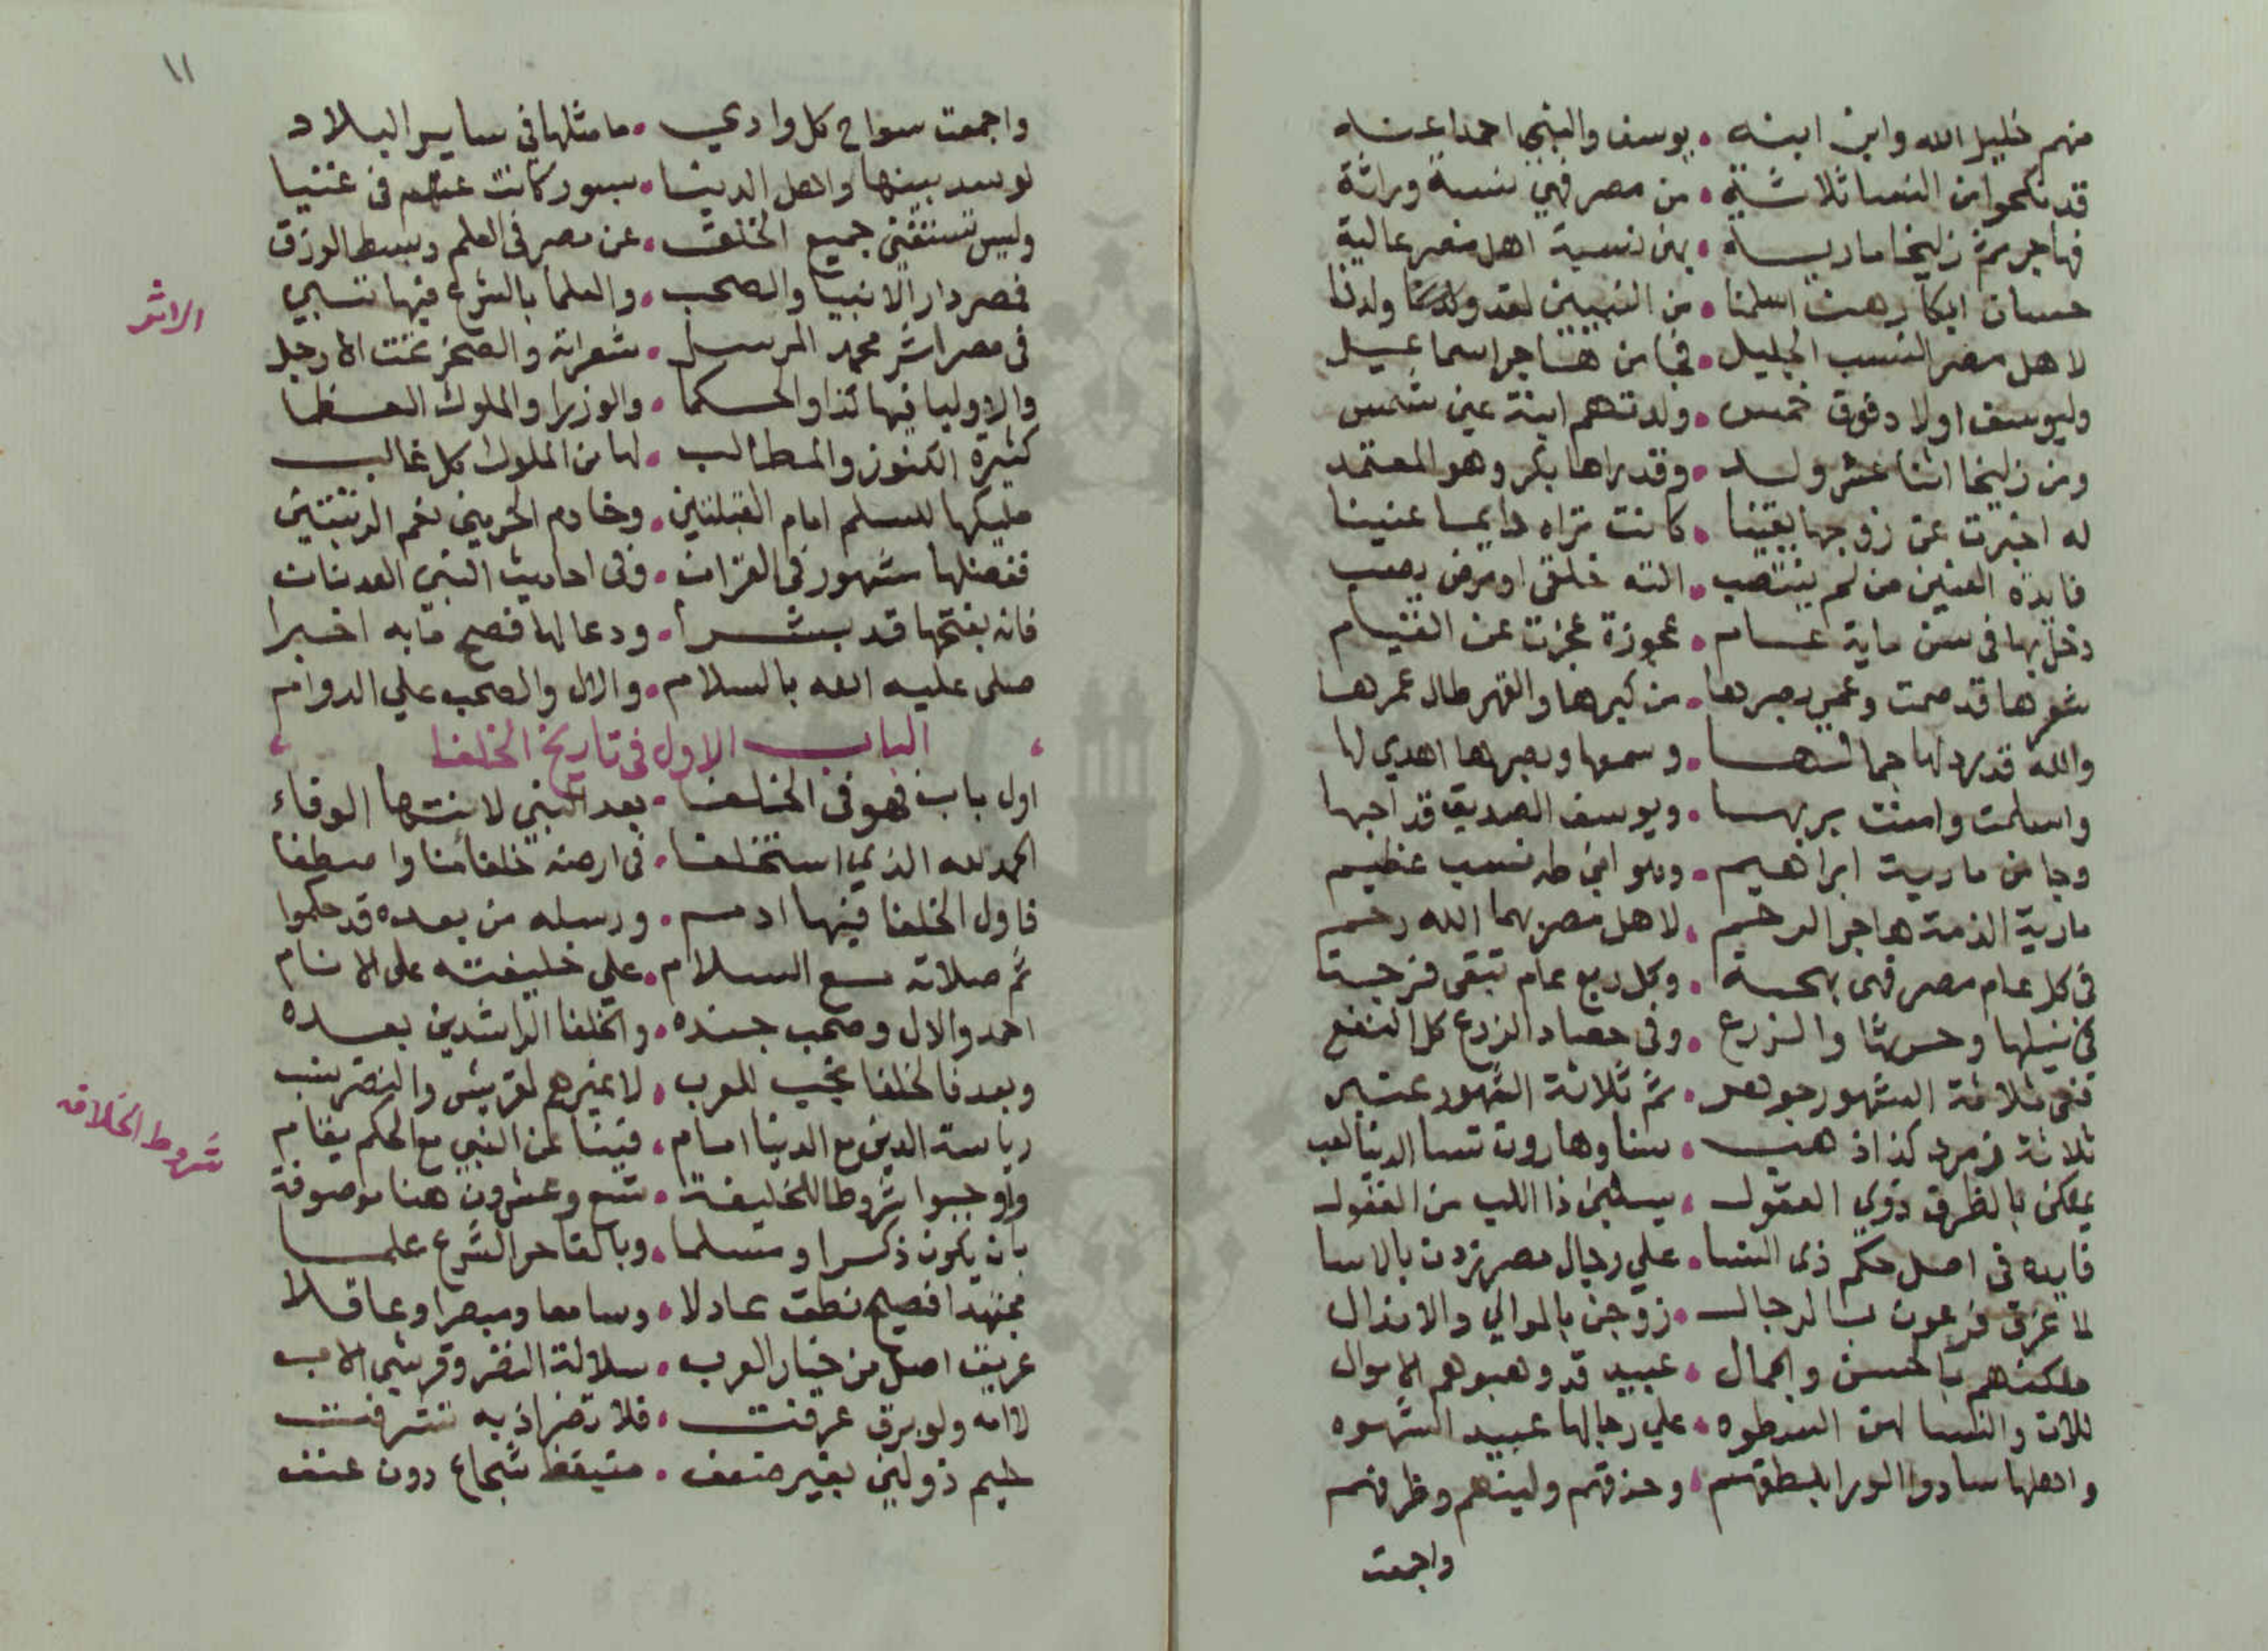 منهم خليل الله وابن ابنه • يوسف والنبي احمد اعنه
قد نكحوا من النسا ثلاثة • من مصر فهي نسبة وراثة
فهاجر ثم زليخا مارية • بهن نسبة اهل مصر عالية
حسان ابكار هن اسلمنا • من النبيين لقد ولدنا
لاهل مصر النسب الجليل • فجا من هاجر اسماعيل
وليوسف اولاد فوق خمس • ولدتهم ابنة عين شمس
ومن زليخا اثنا عشر ولد • وقد يراها بكر وهو المعتمد
له اخبرت عن زوجها يقينا • كانت تراه دايما عنينا
فايدة العنين من لم ينتصب • الته خلقي او مرض يصب
دخل بها في سن ماية عام • عجوزة عجزت عن القيام
شعرها قد صمت وعمي بصرها • من كبرها والقهر طال عمرها
والله قد رد لها جمالها • وسمعها وبصرها اهدي لها
واسلمت وامنت بربها • ويوسف الصديق قد احبها
وجا من مارية ابراهيم • وهو ابن طه نسب عظيم
مارية الذمة هاجر الرحم • لاهل مصر بهما الله رحيم
في كل عام مصر فهى بهجة • وكل ربع عام تبقى فرجة
في نيلها وحرثها والزرع • وفي حصاد الزرع كل النفع
ففي ثلاثة الشهور جوهر • ثم ثلاثة الشهور عنبر
ثلاثة زمرد كذا ذهب • سنا وهاروت نسا الدنيا لعب
يمكن بالظرف ذوي العقول • يسلبن ذا اللب من العقول
فايده في اصل حكم ذي النسا • علي رجال مصر تزدن بالاسا
لما غرق فرعون بالرجال • زوجن بالموالي والانذال
ملكنهم بالحسن والجمال • عبيد قد وهبوهم الاموال
للان والنسا لهن السطوه • علي رجالها عبيد الشهوه
واهلها سادوا الورا بلطفهم • وحذقهم ولينهم وظرفهم
واجمعت
١١
واجمعت سواح كل وادي • ما مثلها في ساير البلاد
لو سد بينها واهل الدنيا • بسور كانت عنهم في غنيا
وليس تستغني جميع الخلق • عن مصر في العلم وبسط الرزق
فمصر دار الانبيا والصحب • والعلما بالشرع فيها تسبي
الاثر
في مصر اثر محمد المرسل • شعراته والصخر تحت الارجل
والاوليا فيها كذا والحكما • والوزرا والملوك العظما
كثيرة الكنوز والمطالب • لها من الملوك كل غالب
مليكها للسلم امام القبلتين • وخادم الحرمين نعم الرتبتين
ففضلها مشهور في القران • وفي احاديث النبي العدنان
فانه بفتحها قد بشرا • ودعا لها فصح ما به اخبرا
صلى عليه الله بالسلام • والال والصحب علي الدوام
الباب الاول في تاريخ الخلفا
اول باب فهو في الخلفا • بعد النبي لانتها الوفاء
الحمد لله الذي استخلفا • في ارضه خلفا منا واصطفا
فاول الخلفا فيها ادم • ورسله من بعده قد حكموا
ثم صلاته مع السلام • علي خليفته على الانام
احمد والال وصحب جنده • والخلفا الراشدين بعده
وبعد فالخلفا نجيب للعرب • لا غيرهم لقريش والنضر ينسب
شروط الخلافه
رياسة الدين مع الدنيا امام • فينا عن النبي مع الحكم يقام
واوجبوا شروطا للخليفة • تسع وعشرون هنا موصوفة
بان يكون ذكرا ومسلما • وبالغا حر الشرع علما
مجتهدا فصيح نطق عادلا • وسامعا ومبصرا وعاقلا
عريق اصل من خيار العرب • سلالة النضر وقرشي الاب
لا امه ولو برق عرفت • فلا تضر اذ به تشرفت
حليم ذو لين بغير ضعف • متيقظ شجاع دون عنف